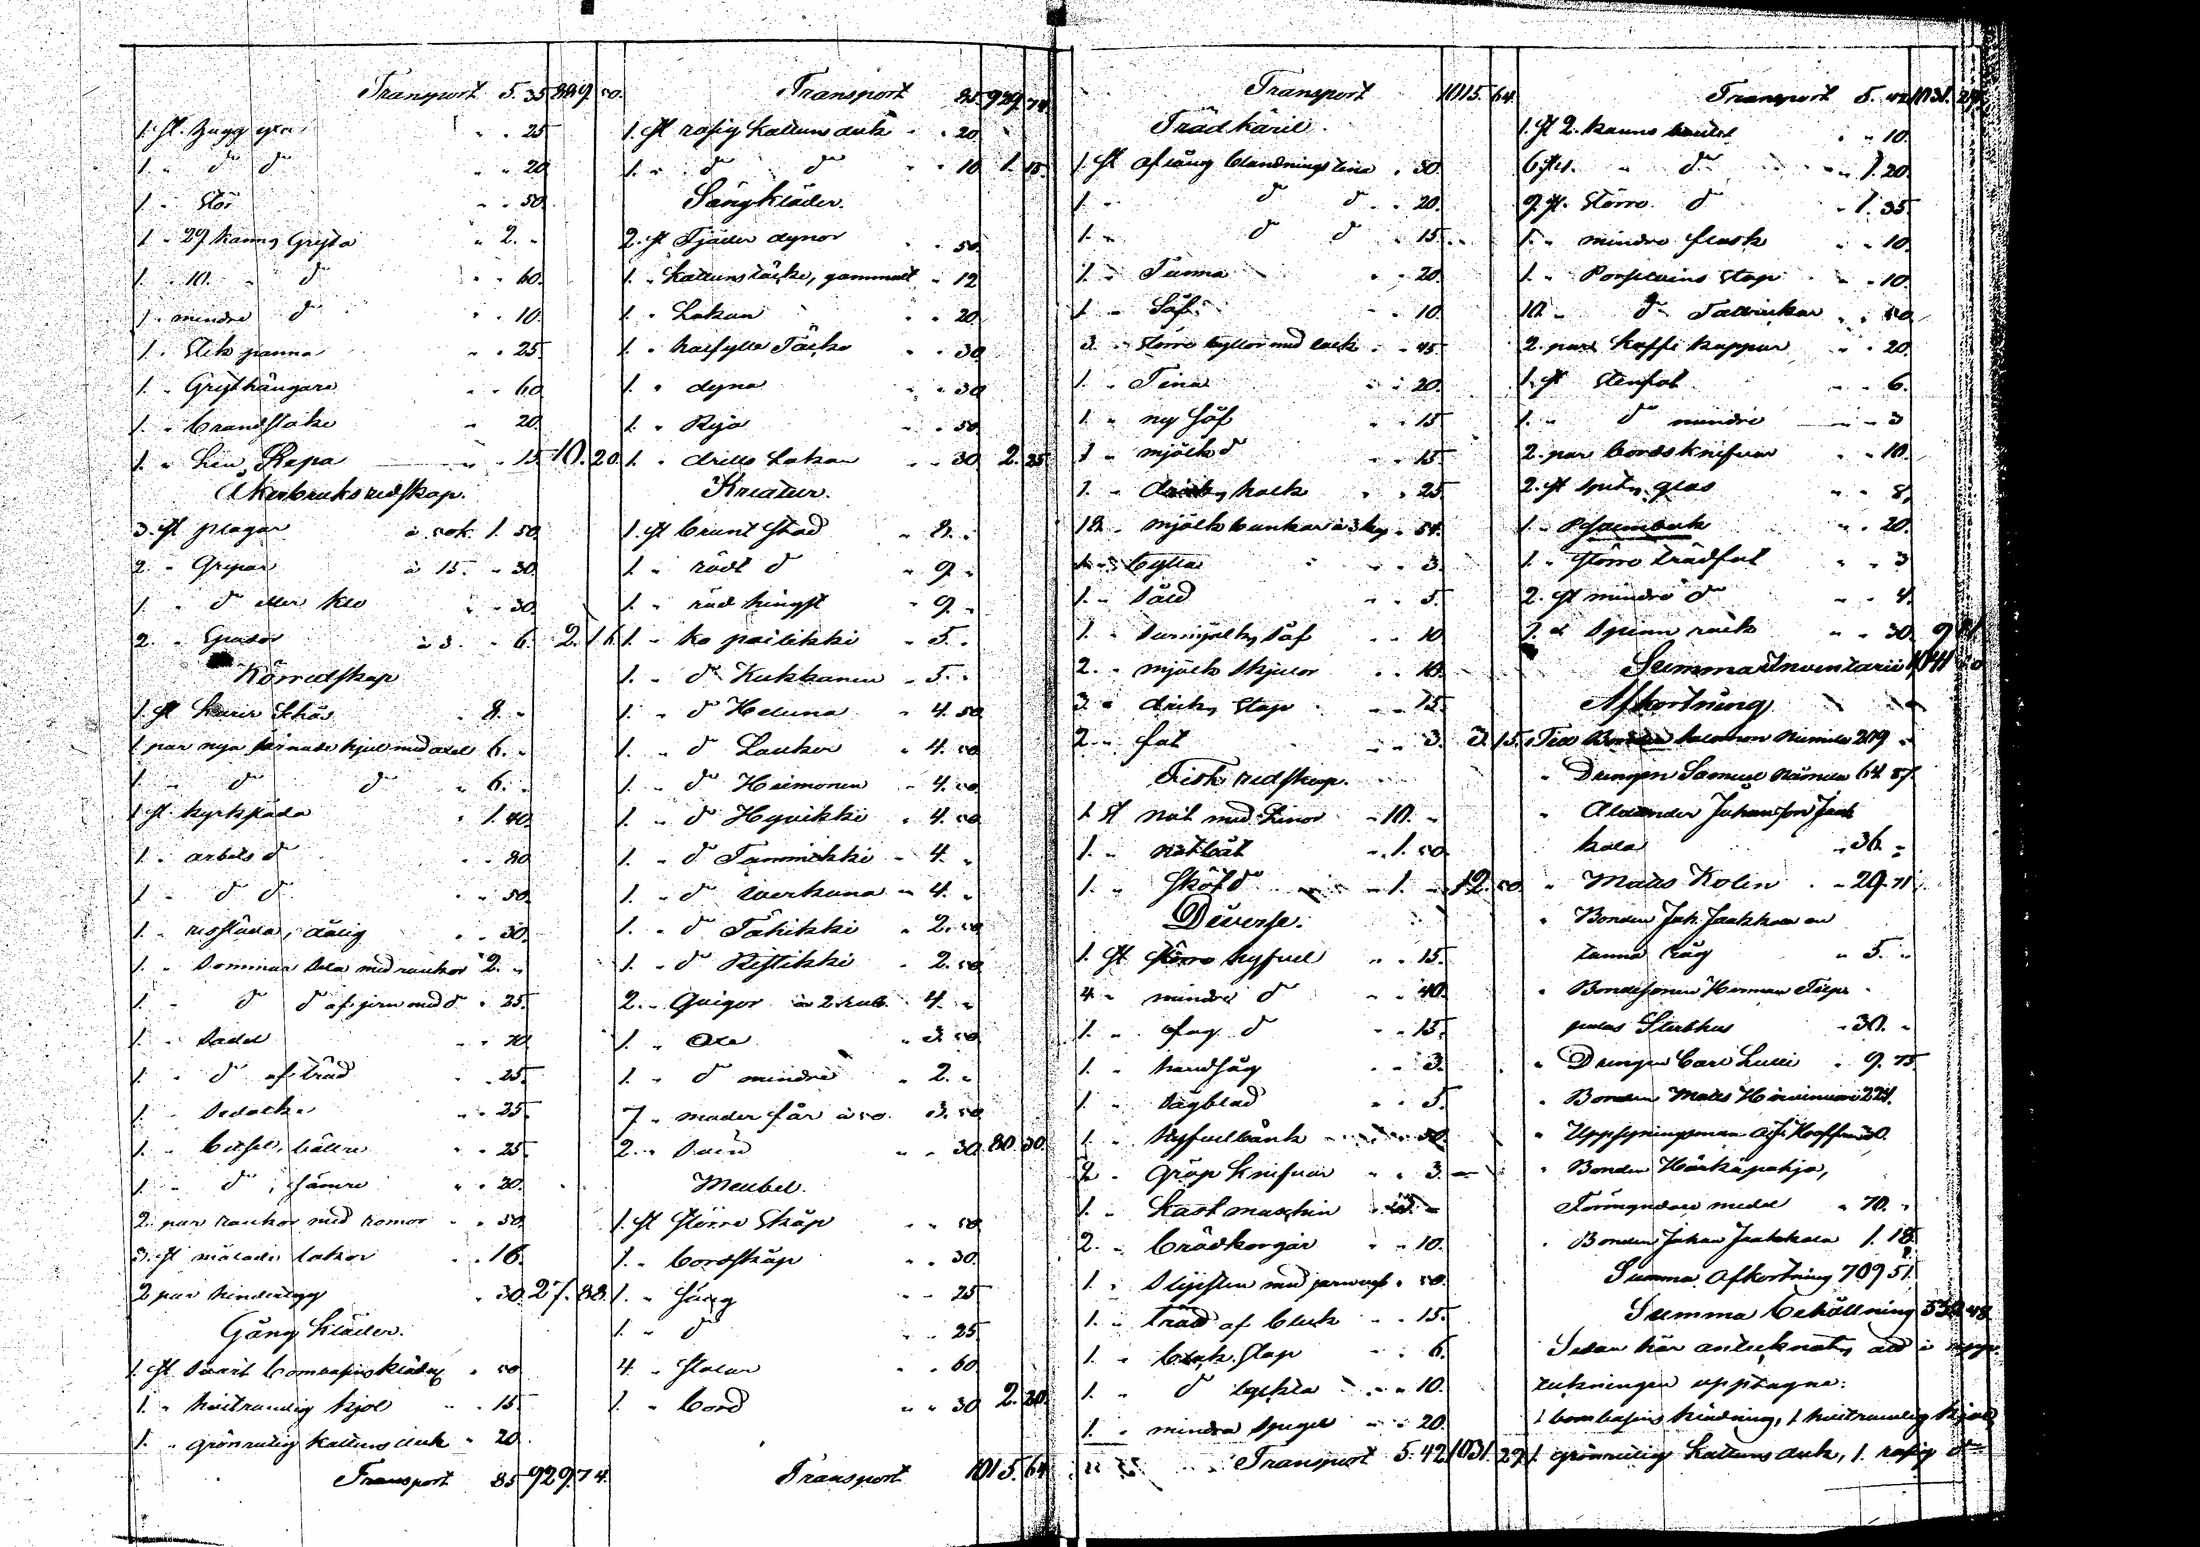 Transport 5. 35 889 50.
1. st. Hugg yxa " " 25
1. " d:o d:o " " 20
1. " Stör " " 50
1 " 29 kanns Gryta " 2. "
1. " 10. " d:o " " 60.
1. " mindre d:o " " 10.
1. " Stek panna " " 25
1. " Grythängare " " 60
1. " brandstake " 20.
1. " Lin Repa " " 15 10. 20
Åkerbruksredskap.
3. st plogar à 50 k. 1. 50.
2. " Gripar à 15. " 30.
1. " d:o eller klo " " 30.
2. " Spador à 3. " 6. 2. 16
Körredskap
1. st Kärr Schäs " 8. "
1 par nya järnade hjul med axel 6. "
1. " d:o d:o " 6. "
1 st. kyrksläda " 1. 40.
1. " arbets d:o " " 80
1. " d:o d:o " " 50.
1. " ressläda, dålig " " 30.
1. " Sommar sela med rankor 2. "
1. " d:o d:o af jern med d:o " 25.
1. " Sadel " " 70.
1. " d:o af träd " 25.
1. " Sedolka " " 25.
1. " betsel, bättre " " 25.
1. " d:o , sämre " " 20.
2. par rankor med remor " " 50.
3. st målade lakor " " 16.
2 par hindertyg " 30. 27. 88.
Gång Kläder.
1. st Svart bombasins klädning " 50
1. " hvitrandig kjol " " 15.
1. " grönrutig kattuns duk " 20
Transport 85 929. 74.
Transport 85. 929. 74
1. st rosig kattuns duk " " 20
1. " d:o d:o " " 10 1. 15.
Sängkläder.
2. st Fjäder dynor " " 50.
1. " Kattuns täcke, gammalt " 12
1. " Lakan " " 20.
1. " Täcke " " 30
1. " dyna " " 30
1. " Rya " " 50
1. " drills Lakan " " 30 2. 25
Kreatur.
1. st brunt stod " 8. "
1. " rödt d:o " 9. "
1. " röd hingst " 9. "
1. " ko paitikki " 5. "
1. " d:o Kukkanen " 5. "
1. " d:o Heluna " 4. 50
1. " d:o Lauker " 4. 50
1. " d:o Heimonen " 4. 50
1. " d:o Hyvikki " 4. 50
1. " d:o Tammikki " 4. "
1. " d:o Werkuna " 4. "
1. " d:o Tähikki " 2. 50
1. " d:o Ristikki " 2. 50
2. " Qvigor à 2 rub. 4. "
1. " Oxe " 3. 50
1. " d:o mindre " 2. "
7 " moder får à 50. 3. 50
2. " Svin " " 30 80. 30.
Meubel.
1. st större Skåp " " 50
1. " bordskåp " " 30.
1. " säng " " 25
1. " d:o " " 25
4 " stolar " " 60
1. " bord " " 30 2. 20.
Transport 1015. 64
Transport 1015. 64.
Trädkäril.
1. st aflång blandnings tina " 30.
1. " d:o d:o " " 20.
1. " d:o d:o " 15.
1. " Tunna " " 20.
1. " Såf " " 10.
3. " större byttor med lock " " 45
1. " Tina " " 20.
1. " ny såf " " 15
1. " mjölk d:o " " 15.
1. " dricks halk " " 25
18. " mjölk bunkar à 3 kop " 54.
1. " bytta " " 3.
1. " Såld " " 5.
1. " Surmjölks såf " " 10
2. " mjölk skjulor " " 10.
3. " dricks Stop " " 15
2. " fat " " 3. 3. 15.
Fisk redskap.
1. st not med Linor " 10. "
1. " notbåt " 1. 50.
1. " sköt d:o " 1. " 12. 50.
Diverse.
1. st större hyfvel " " 15.
4 " mindre d:o " " 40.
1. " fog d:o " " 15.
1. " handsåg " " 3.
1. " sågblad " " 5.
1. " Hyfvelbänk " " 50.
2. " gröp knifvar " " 3.
1. " Kast maschin "
2. " brödkorgar " " 10.
1. " Slipsten med jernvef " 50.
1. " tråd af bleck " " 15.
1. " bleck stop " " 6.
1. " d:o lyckta " " 10.
1. " mindre spegel " " 20.
Transport 5. 42. 1031. 29
Transport 5. 42 1031. 29.
1. st 2. kanns butel " " 10.
6 st 1. " d:o " " 1. 20.
9 st. större d:o " 1. 35.
1. " mindre flask " " 10.
1. " Porslains Stop " " 10.
10. " d:o Tallrickar " " 50.
2. par kaffe koppar " " 20.
1. st stenfat " " 6.
1. " d:o mindre " " 3
2. par bordsknifvar " " 10.
2. st spets glas " " 8.
1. " Psalmbok " " 20.
1. " större trädfat " " 3
2. st mindre d:o " " 4.
1. st Spinn rock " " 30. 9 81.
Summa Inventarii 1041 10
Afkortning
Till Bonden Salomon Niemelä 219 "
" Drängen Samuel Niemelä 64 87.
" Alexander Johansson Jaak
kola " 36. "
" Matts Kolin " 29. 71
" Bonden Joh. Jaakkola en
tunna råg " 5. "
" Bondesonen Herman
Sterbhus " 30. "
" Drängen Carl Lulli " 9. 75
" Bonden Matts 224.
" Uppsyningsman
" Bonden Härkäpohja,
Förmyndare medel " 70. "
" Bonden Johan Jaakkola 1. 18.
Summa Afkortning 709 51.
Summa behållning 331. 48
Sedan här antecknats, äro i upp
teckningen upptagne:
1 bombasins klädning, 1 hvitrandig kjol,
1. grönrutig Kattuns duk, 1. rosig d:o